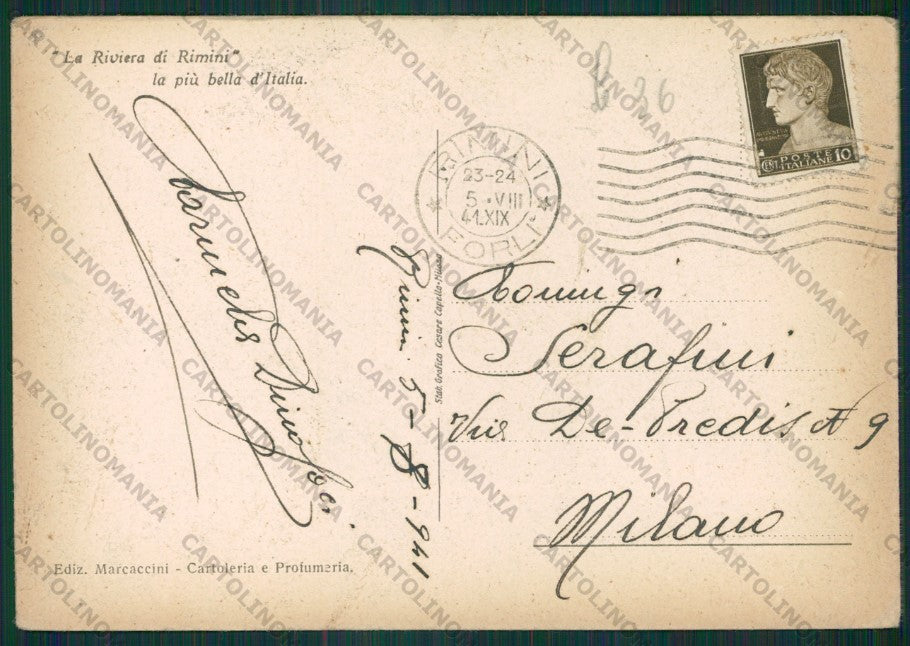 "La Riviera di Rimini"
la più bella d'Italia.
B 36
RIMINI
23-24
5 · VIII
41.XIX
FORLÌ
POSTE
ITALIANE 10
Rimini 5-8-941
Stab. Grafico Cesare Capello-Milano
Serafini
Via De-Predis N 9
Milano
Ediz. Marcaccini - Cartoleria e Profumeria.
CARTOLINOMANIA